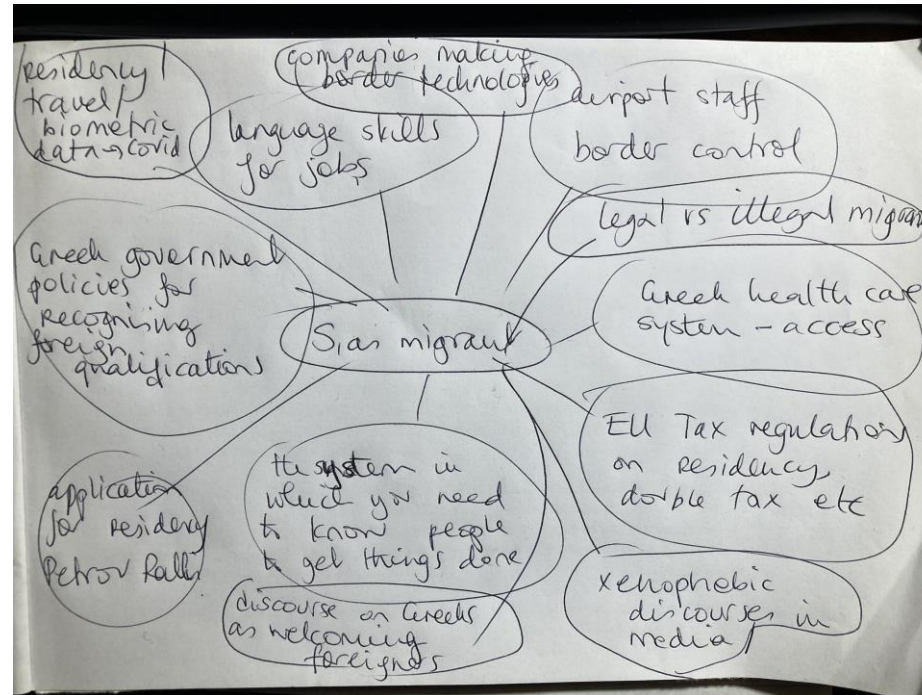 residency /
travel /
biometric
data → covid
companies making
border technologies
language skills
for jobs
airport staff
border control
legal vs illegal migrant
Greek government
policies for
recognising
foreign
qualifications
S, as migrant
Greek health care
system - access
EU Tax regulations
on residency,
double tax etc
application
for residency
Petrou Ralli
the system in
which you need
to know people
to get things done
discourse on Greeks
as welcoming
foreigners
xenophobic
discourses in
media